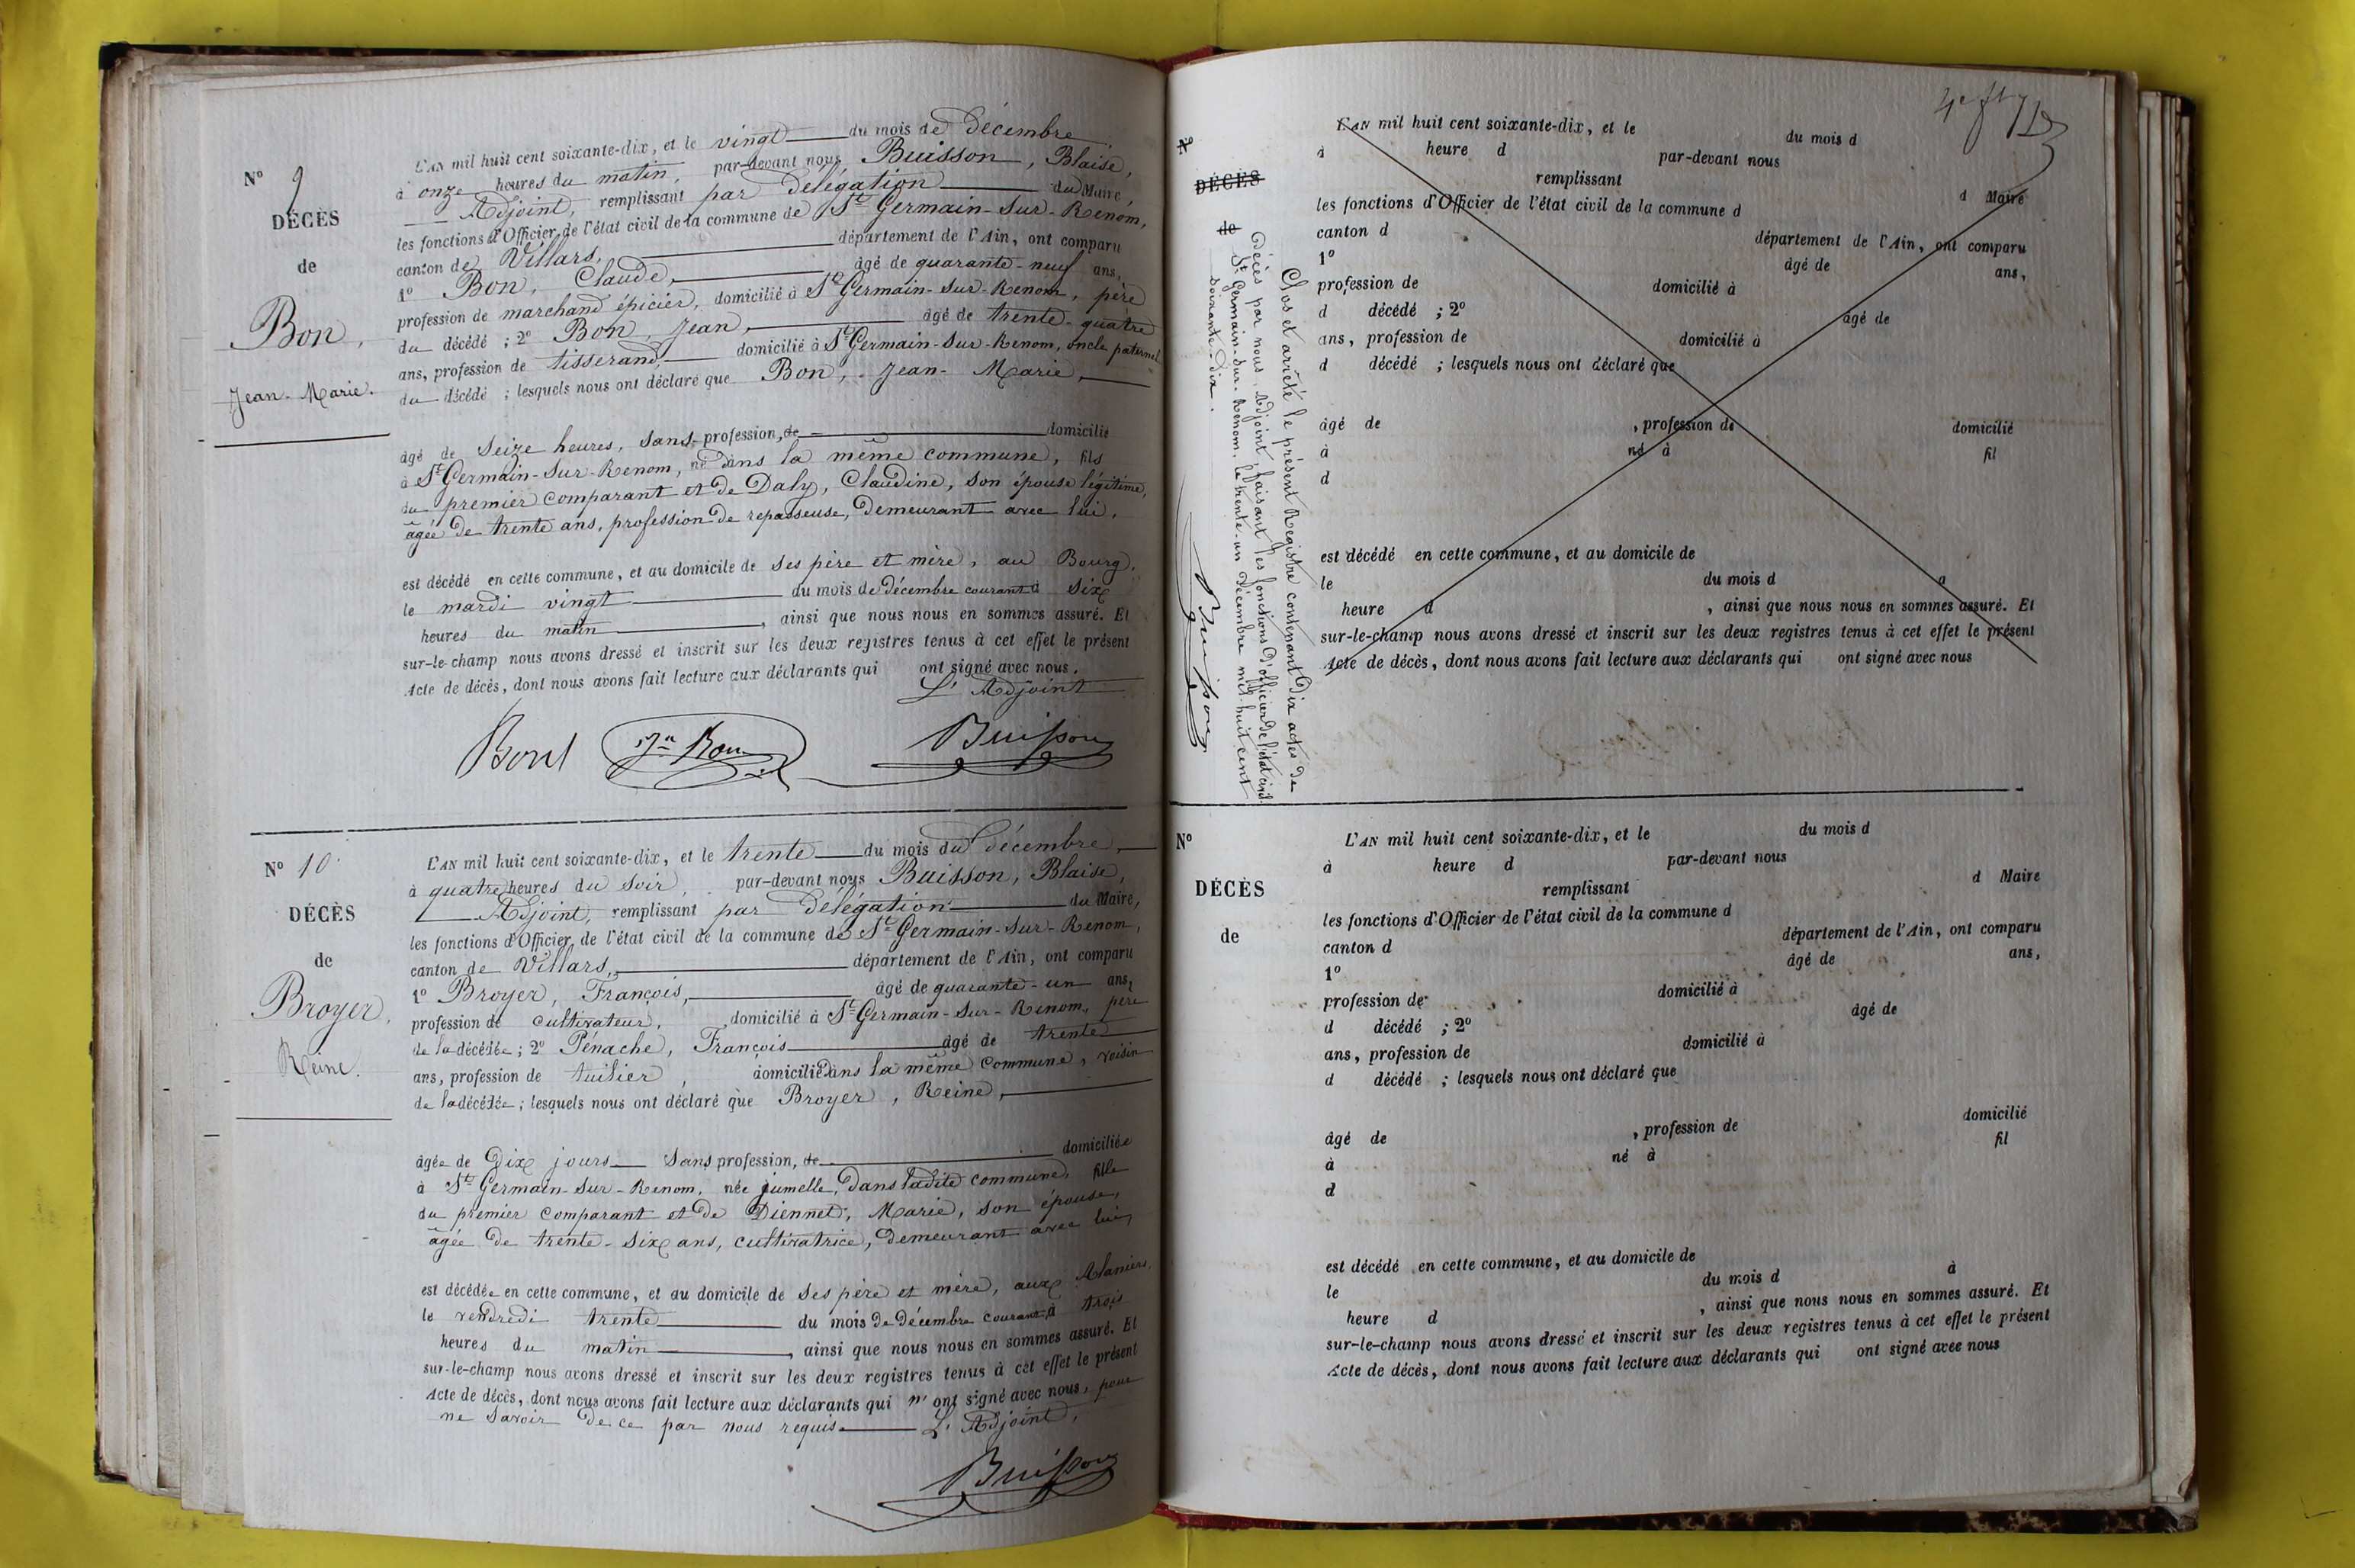 N° 9
DÉCÈS
de
Bon,
Jean-Marie.
L'AN mil huit cent soixante-dix, et le vingt du mois de Décembre
à onze heures du matin, par-devant nous Buisson, Blaise,
Adjoint, remplissant par délégation du Maire,
les fonctions d'Officier de l'état civil de la commune de St Germain-sur-Renom,
canton de Villars, département de l'Ain, ont comparu
1° Bon, Claude, âgé de quarante-neuf ans,
profession de marchand épicier, domicilié à St Germain-sur-Renom, père
du décédé ; 2° Bon, Jean, âgé de trente-quatre
ans, profession de tisserand, domicilié à St Germain-sur-Renom, oncle paternel
du décédé ; lesquels nous ont déclaré que Bon, Jean-Marie,
âgé de seize heures, sans profession, de domicilié
à St Germain-sur-Renom, né dans la même commune, fils
du premier comparant et de Daly, Claudine, son épouse légitime,
âgée de trente ans, profession de repasseuse, demeurant avec lui,
est décédé en cette commune, et au domicile de ses père et mère, au Bourg,
le mardi vingt du mois de Décembre courant à six
heures du matin, ainsi que nous nous en sommes assuré. Et
sur-le-champ nous avons dressé et inscrit sur les deux registres tenus à cet effet le présent
Acte de décès, dont nous avons fait lecture aux déclarants qui ont signé avec nous.
L'Adjoint
Bon Jn Bon Buisson
N° 10
DÉCÈS
de
Broyer,
Reine.
L'AN mil huit cent soixante-dix, et le trente du mois du Décembre,
à quatre heures du soir, par-devant nous Buisson, Blaise,
Adjoint, remplissant par délégation du Maire,
les fonctions d'Officier de l'état civil de la commune de St Germain-sur-Renom,
canton de Villars, département de l'Ain, ont comparu
1° Broyer, François, âgé de quarante-un ans,
profession de cultivateur, domicilié à St Germain-sur-Renom, père
de la décédée ; 2° Pénache, François âgé de trente
ans, profession de tuilier, domicilié dans la même commune, voisin
de la décédée ; lesquels nous ont déclaré que Broyer, Reine,
âgée de dix jours sans profession, de domiciliée
à St Germain-sur-Renom, née jumelle, dans ladite commune, fille
du premier comparant et de Diennet, Marie, son épouse,
âgée de trente-six ans, cultivatrice, demeurant avec lui,
est décédée en cette commune, et au domicile de ses père et mère, aux Alaniers,
le vendredi trente du mois de Décembre courant à trois
heures du matin, ainsi que nous nous en sommes assuré. Et
sur-le-champ nous avons dressé et inscrit sur les deux registres tenus à cet effet le présent
Acte de décès, dont nous avons fait lecture aux déclarants qui n'ont signé avec nous, pour
ne savoir de ce par nous requis. L'Adjoint,
Buisson
N°
DÉCÈS
de
Clos et arrêté le présent Registre contenant Dix actes de
Décès par nous, Adjoint, faisant les fonctions d'officier de l'état civil
St Germain-sur-Renom, le trente-un Décembre mil huit cent
soixante-dix.
Buisson
L'AN mil huit cent soixante-dix, et le du mois d
à heure d par-devant nous
remplissant d Maire
les fonctions d'Officier de l'état civil de la commune d
canton d département de l'Ain, ont comparu
1° âgé de ans,
profession de domicilié à
d décédé ; 2° âgé de
ans, profession de domicilié à
d décédé ; lesquels nous ont déclaré que
âgé de , profession de domicilié
à né à fil
d
est décédé en cette commune, et au domicile de
le du mois d à
heure d , ainsi que nous nous en sommes assuré. Et
sur-le-champ nous avons dressé et inscrit sur les deux registres tenus à cet effet le présent
Acte de décès, dont nous avons fait lecture aux déclarants qui ont signé avec nous
N°
DÉCÈS
de
L'AN mil huit cent soixante-dix, et le du mois d
à heure d par-devant nous
remplissant d Maire
les fonctions d'Officier de l'état civil de la commune d
canton d département de l'Ain, ont comparu
1° âgé de ans,
profession de domicilié à
d décédé ; 2° âgé de
ans, profession de domicilié à
d décédé ; lesquels nous ont déclaré que
âgé de , profession de domicilié
à né à fil
d
est décédé en cette commune, et au domicile de
le du mois d à
heure d , ainsi que nous nous en sommes assuré. Et
sur-le-champ nous avons dressé et inscrit sur les deux registres tenus à cet effet le présent
Acte de décès, dont nous avons fait lecture aux déclarants qui ont signé avec nous